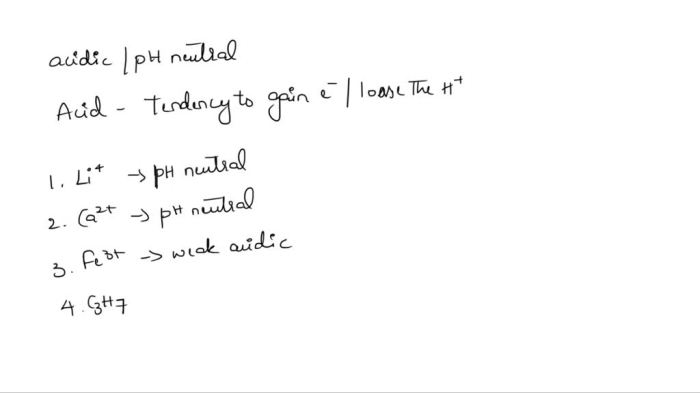 acidic / pH neutral
Acid - Tendency to gain e⁻ / loose The H⁺
1. Li⁺ → pH neutral
2. Ca²⁺ → pH neutral
3. Fe³⁺ → weak acidic
4. C₃H₇